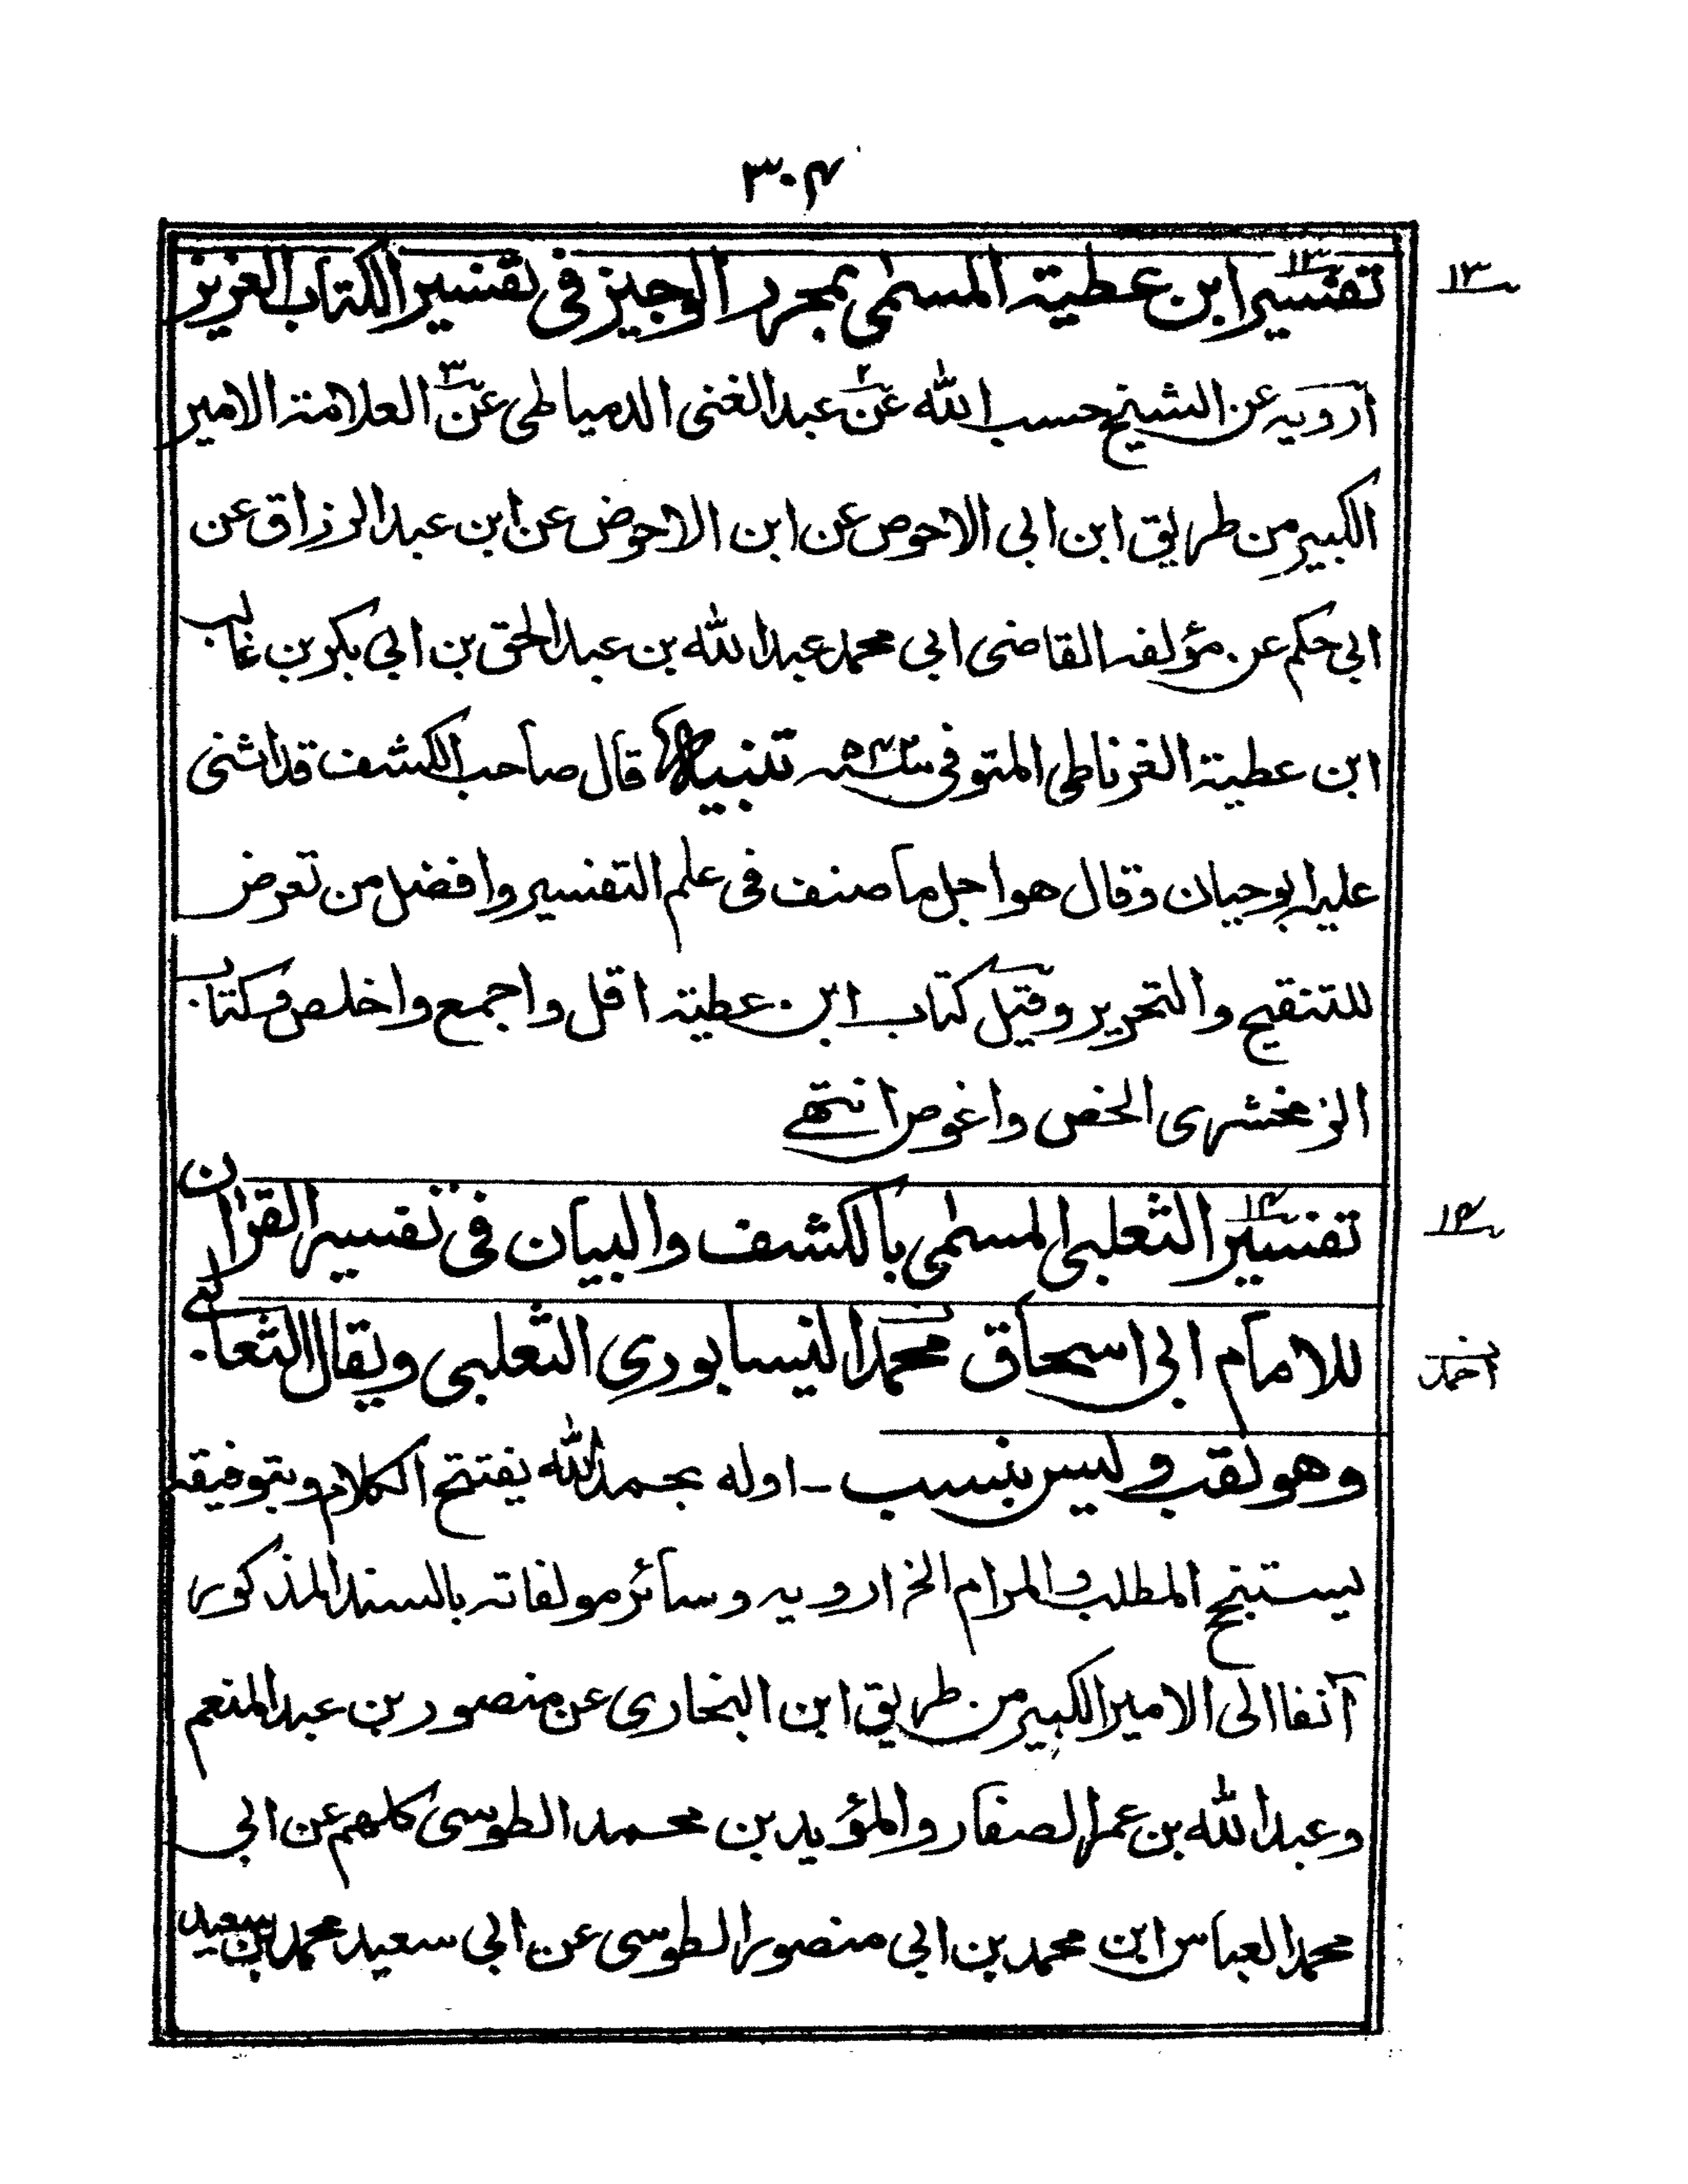 ٣٠٤
١٣
تفسير ابن عطية المسمى بمحرر الوجيز فى تفسير الكتاب العزيز
ارويه عن الشيخ حسب الله عن عبد الغنى الدمياطى عن العلامة الامير
الكبير من طريق ابن ابى الاحوص عن ابن الاحوض عن ابن عبد الرزاق عن
ابى حكم عن مؤلفه القاضى ابى محمد عبد الله بن عبد الحق بن ابى بكر بن غالب
ابن عطية الغرناطى المتوفى سنه ٥٤٢ تنبيه قال صاحب الكشف قد اثنى
عليه ابو حيان وقال هو اجل ما صنف فى علم التفسير وافضل من تعرض
للتنقيح والتحرير وقيل كتاب ابن عطية اقل واجمع واخلص وكتاب
الزمخشرى الخص واغوص انتهى
١٤
تفسير الثعلبى المسمى بالكشف والبيان فى تفسير القران
للامام ابى اسحاق محمد النيسابورى الثعلبى ويقال الثعالبى
احمد بن
وهو لقب وليس بنسب - اوله بحمد الله يفتتح الكلام وبتوفيقه
يستنجح المطلب والمرام الخ ارويه وسائر مولفاته بالسند المذكور
آنفا الى الامير الكبير من طريق ابن البخارى عن منصور بن عبد المنعم
وعبد الله بن عمر الصفار والمؤيد بن محمد الطوسى كلهم عن ابى
محمد العباس ابن محمد بن ابى منصور الطوسى عن ابى سعيد محمد بن سعيد